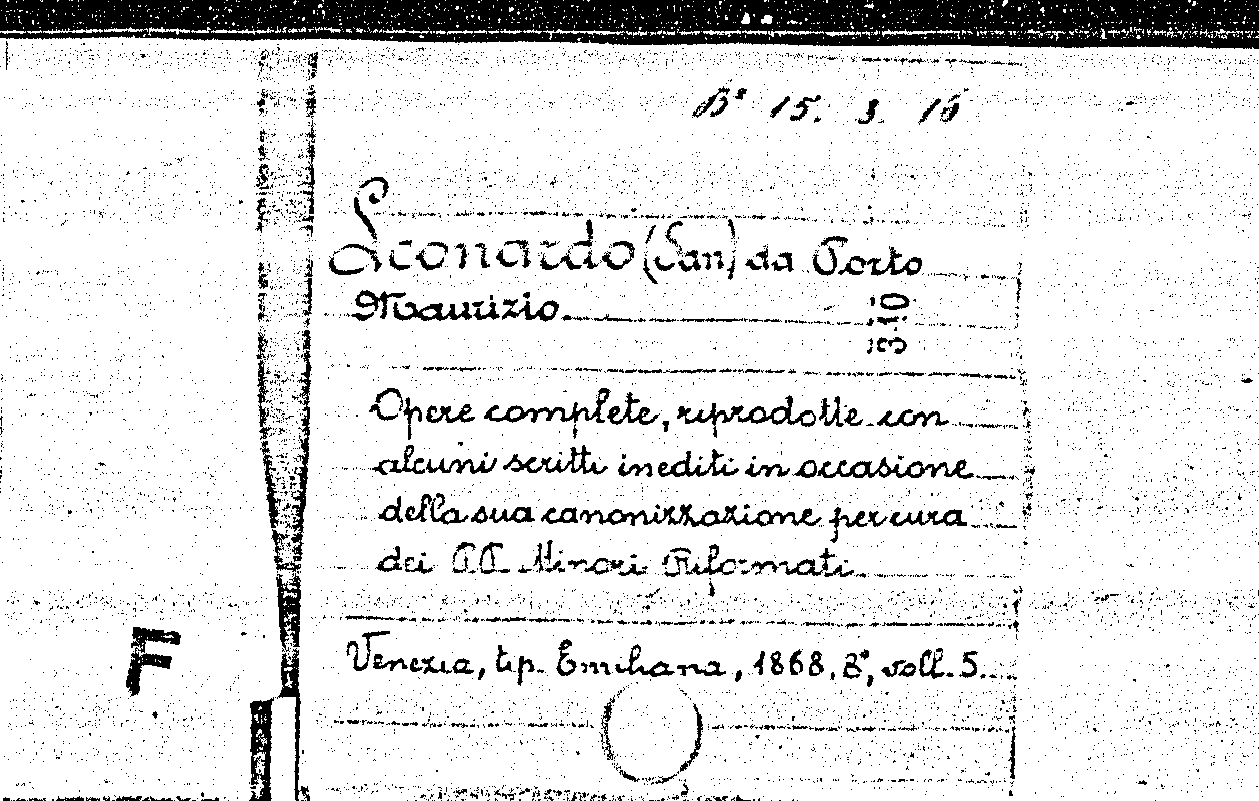 B° 15. 3. 16
Leonardo (San) da Porto
Maurizio.
310
Opere complete, riprodotte con
alcuni scritti inediti in occasione
della sua canonizzazione per cura
dei PP. Minori Riformati.
F
Venezia, tip. Emiliana, 1868, 8°, voll. 5.